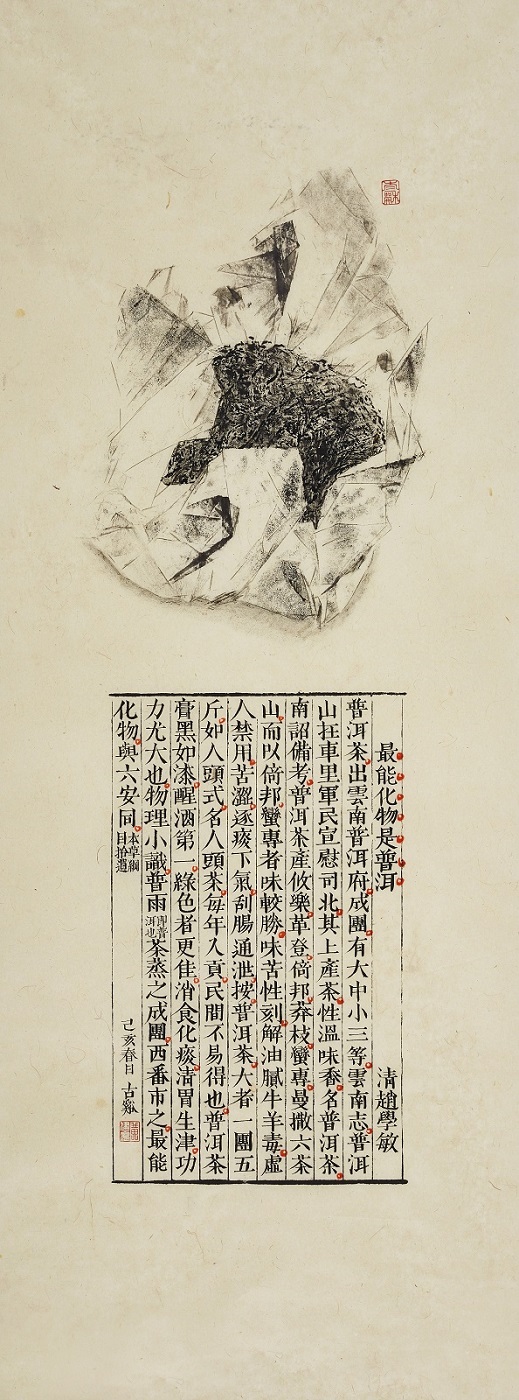 最能化物是普洱 清趙學敏
普洱茶出雲南普洱府成團有大中小三等雲南志普洱
山在車里軍民宣慰司北其上產茶性溫味香名普洱茶
南詔備考普洱茶產攸樂革登倚邦莽枝蠻專曼撒六茶
山而以倚邦蠻專者味較勝味苦性刻解油膩牛羊毒虛
人禁用苦澀逐痰下氣刮腸通泄按普洱茶大者一團五
斤如人頭式名人頭茶每年入貢民間不易得也普洱茶
膏黑如漆醒酒第一綠色者更佳消食化痰清胃生津功
力尤大也物理小識普雨即普洱也茶蒸之成團西番市之最能
化物與六安同本草綱目拾遺
己亥春日 古谿